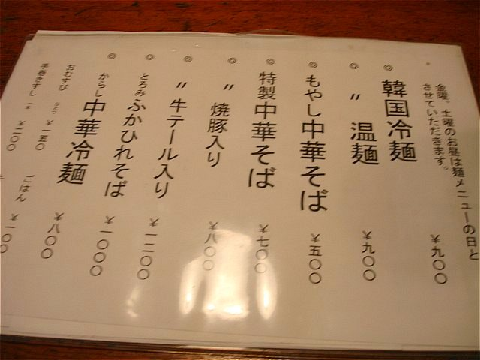 金曜、土曜のお昼は麺メニューの日と
させていただきます。
◎韓国冷麺 ¥九〇〇
◎〃 温麺 ¥九〇〇
◎もやし中華そば ¥五〇〇
◎特製中華そば ¥七〇〇
◎〃 焼豚入り ¥八〇〇
◎〃 牛テール入り ¥一二〇〇
◎とろみふかひれそば ¥一〇〇〇
◎からし中華冷麺 ¥八〇〇
おむすび ¥一五〇 ごはん ¥一〇
手巻きずし ¥二〇〇